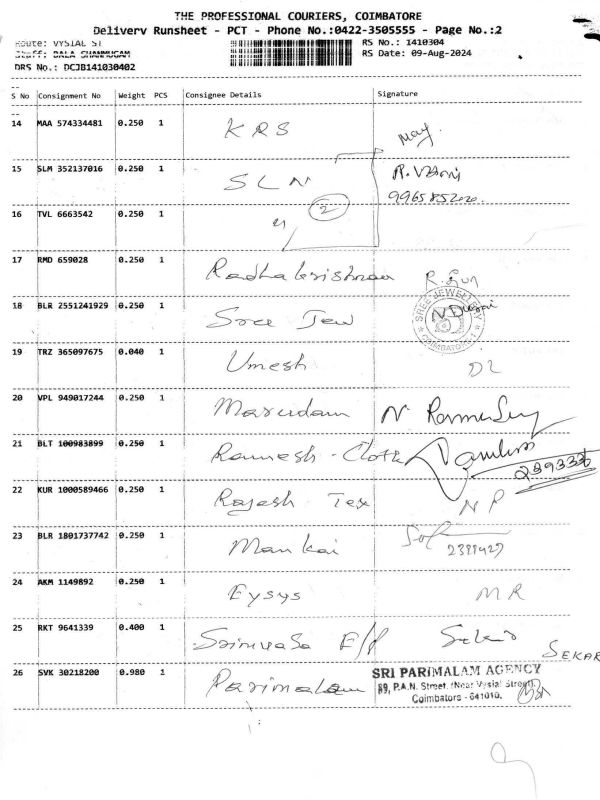 THE PROFESSIONAL COURIERS, COIMBATORE
Delivery Runsheet - PCT - Phone No.:0422-3505555 - Page No.:2
Route: VYSIAL ST
RS No.: 1410304
Staff: BALA SHANMUGAM
RS Date: 09-Aug-2024
DRS No.: DCJB141030402
S No Consignment No Weight PCS Consignee Details Signature
14 MAA 574334481 0.250 1 KRS
15 SLM 352137016 0.250 1 SLN R. Vasni
16 TVL 6663542 0.250 1 2
17 RMD 659028 0.250 1 Radhakrishnan
18 BLR 2551241929 0.250 1 Sree Jew
SREE JEWELLERY
COIMBATORE-1
19 TRZ 365097675 0.040 1 Umesh
20 VPL 949017244 0.250 1 Marudam
21 BLT 100983899 0.250 1 Ramesh - Cloth
2393336
22 KUR 1000589466 0.250 1 Rajesh Tex NP
23 BLR 1801737742 0.250 1 Mankai
24 AKM 1149892 0.250 1 Eysys MR
25 RKT 9641339 0.400 1 Srinivasa E/P SEKAR
26 SVK 30218200 0.980 1 Parimalam
SRI PARIMALAM AGENCY
89, P.A.N. Street, (Near Vysial Street),
Coimbatore - 641010.